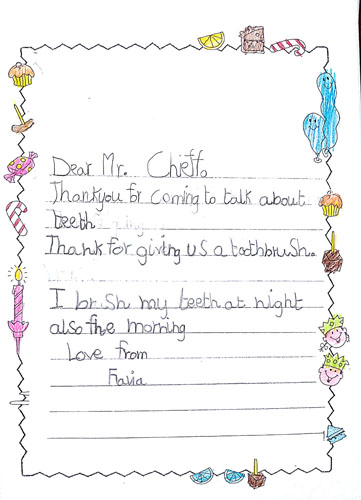 Dear Mr. Chieff.
Thankyou for coming to talk about
teeth
Thank for giving us a toothbrush.
I brsh my teeth at night
also the morning
Love from